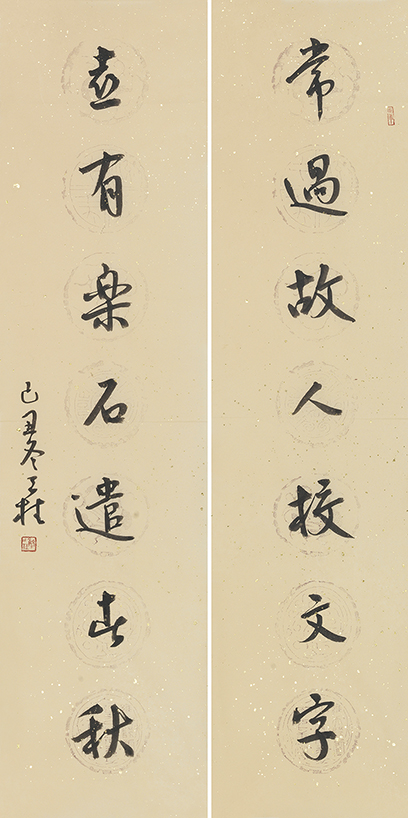 常過故人校文字
喜有樂石遣春秋
己丑冬